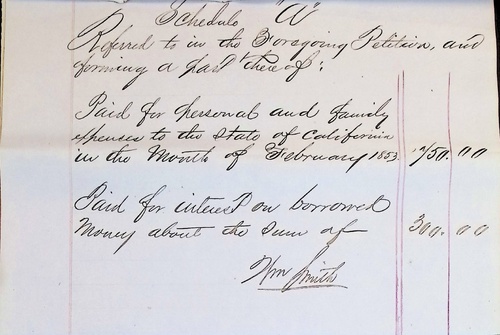 Schedule "A"
Referred to in the Foregoing Petition, and
forming a part thereof:
Paid for personal and family
expenses to the State of California
in the Month of February 1853. 750.00
Paid for interest on borrowed
Money about the sum of 300.00
Wm Smith